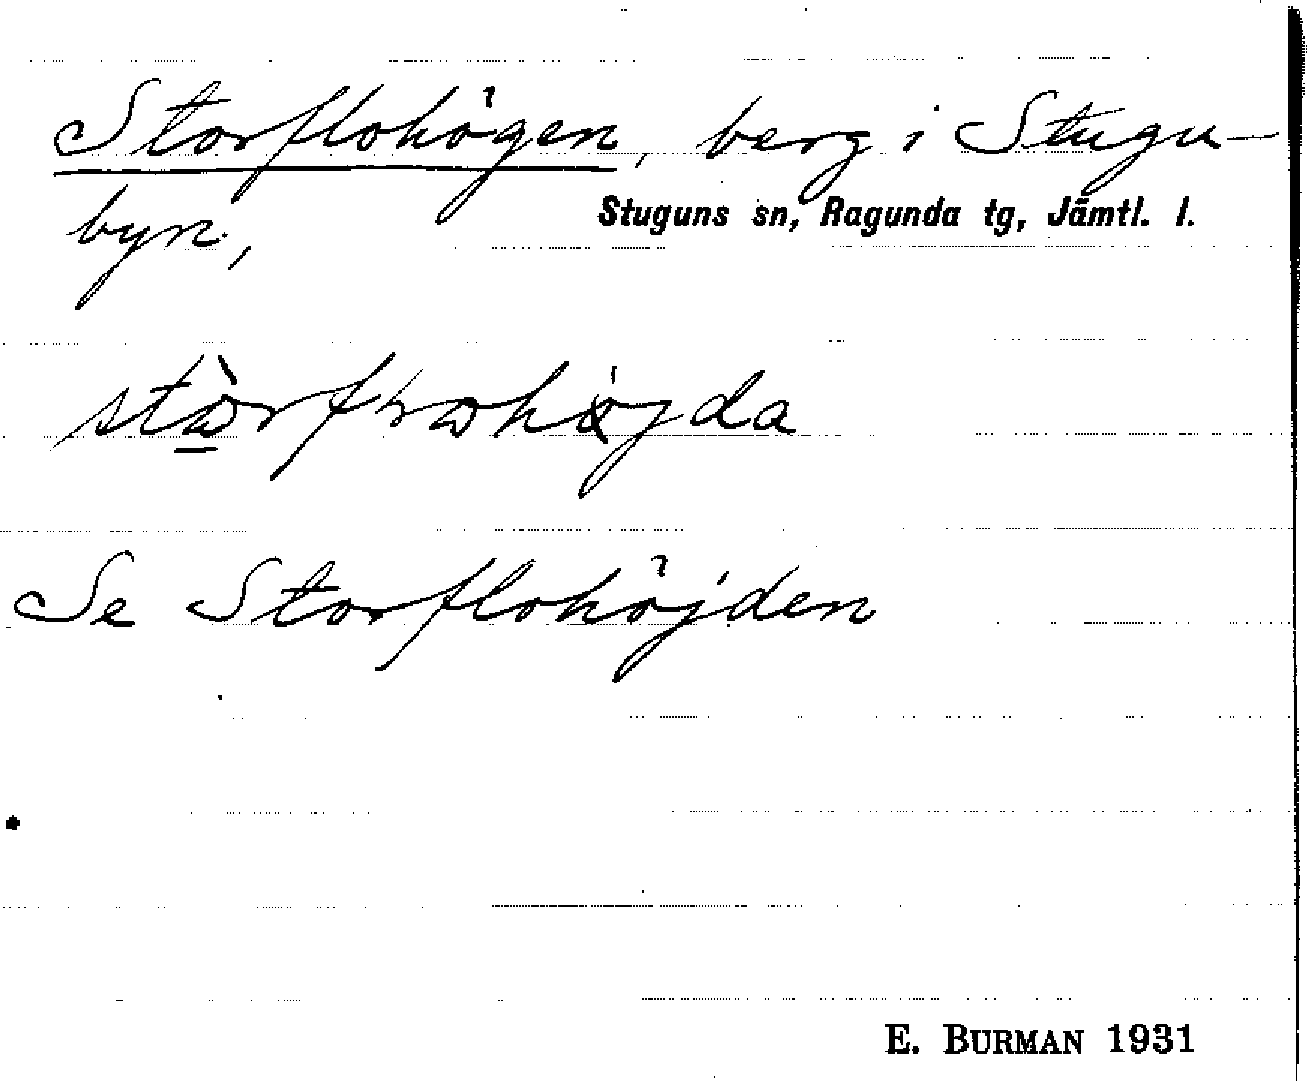 Storflohögen, berg i Stugu-
Stuguns sn, Ragunda tg, Jämtl. l.
byn,
Se Storflohöjden
E. BURMAN 1931